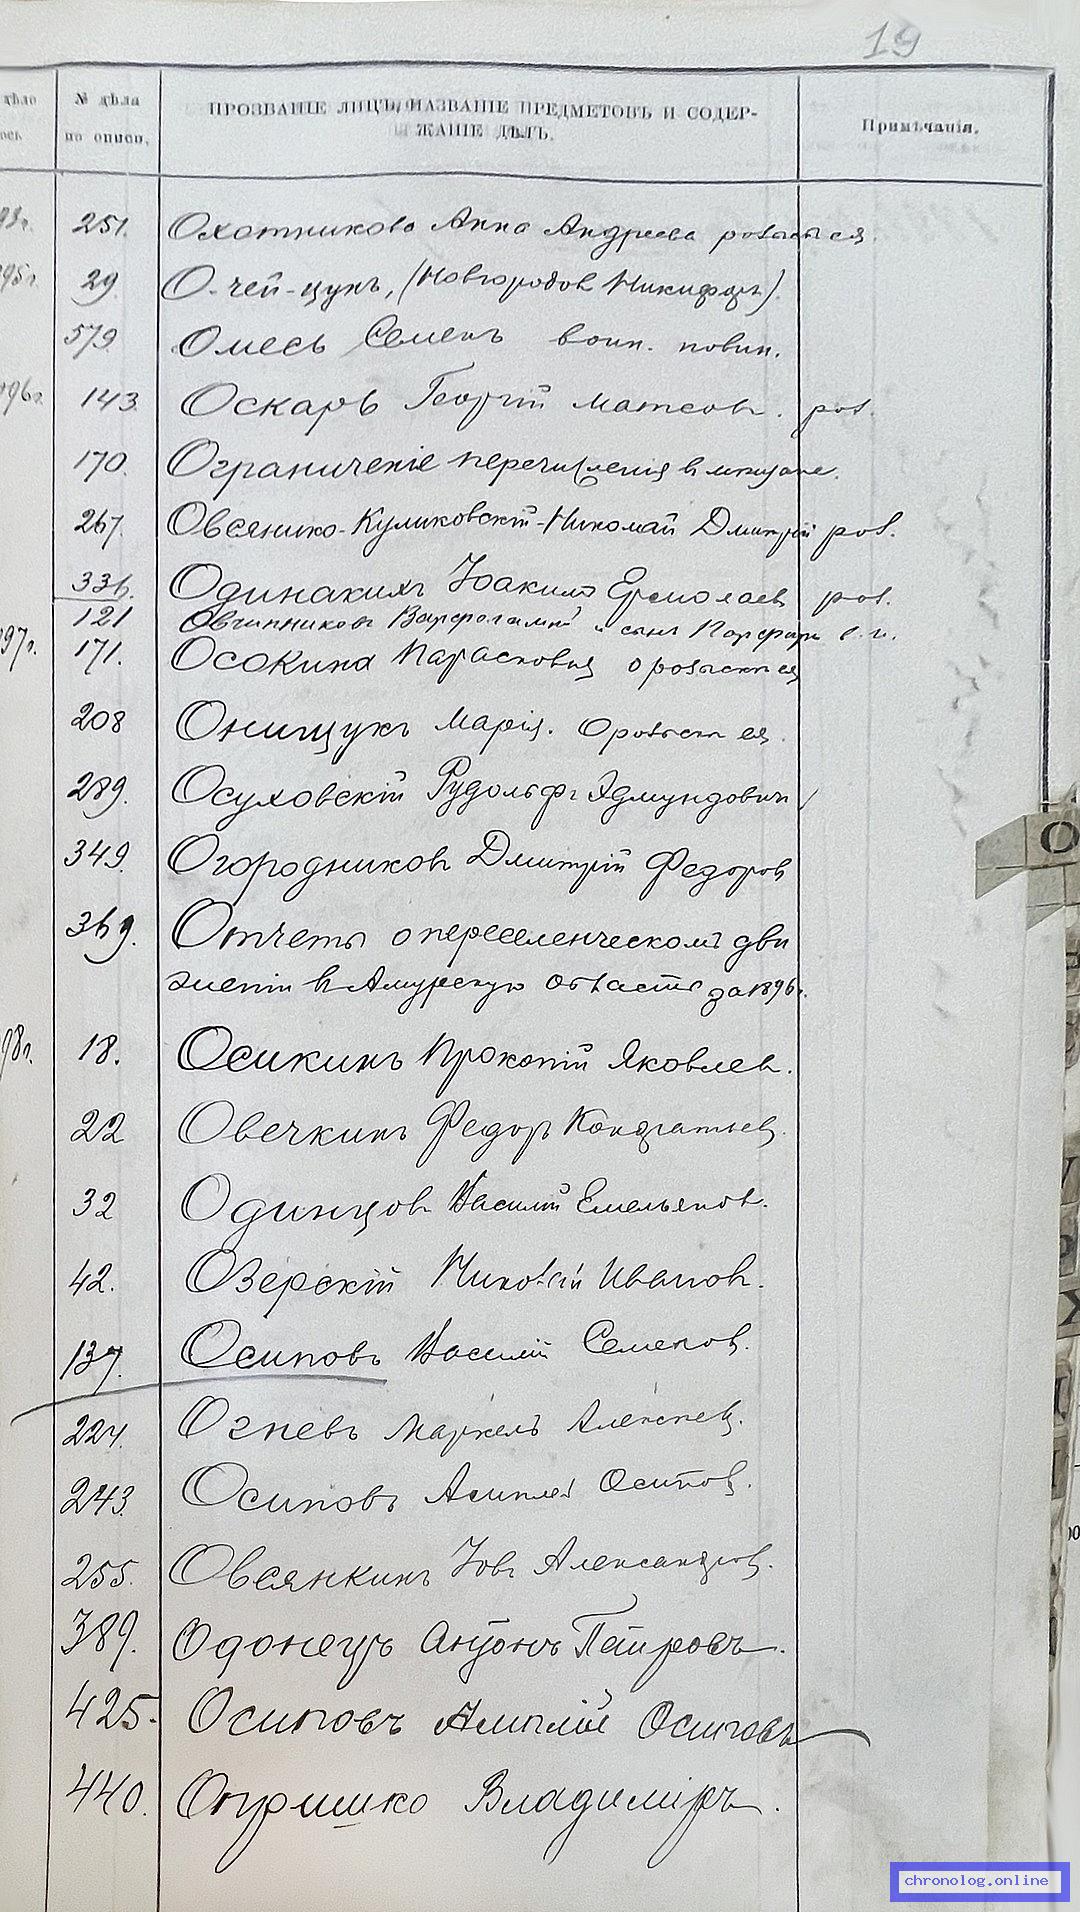 19
дѣло № дѣла ПРОЗВАНІЕ ЛИЦЪ, НАЗВАНІЕ ПРЕДМЕТОВЪ И СОДЕР- Примѣчанія.
по описи. ЖАНІЕ ДѢЛЪ.
251. Охотникова Анна Андреева
95г. 29 О-чей-цунъ, (Новгородов Никифоръ)
579 Омесь Семенъ воин. повин.
96г. 143. Оскаръ Георгій роз.
170. Ограниченіе перечисленія в
267. Овсянико-Куликовскій-Николай Дмитрій роз.
336. Одинакихъ Іоакимъ Ермолаев роз.
121 Овчинниковъ Варфоломей и сынъ
97г. 171. Осокина Парасковья о розыск ея
208 Онищукъ Марія. О розыск ея
289. Осуховскій Рудольфъ Эдмундович
349. Огородниковъ Дмитрій Федоров
369. Отчетъ о переселенческомъ дви
женіи в Амурскую область за 1896г.
98г. 18. Осикинъ Прокопій Яковлев.
22 Овечкинъ Федоръ Кондратьев.
32 Одинцовъ Василій Емельянов.
42. Озерскій Иванов.
137. Осиповъ Василій Семенов.
224. Огневъ Маркелъ Алексѣев.
243. Осиповъ Осипов.
255. Овсянкинъ Іовъ Александров.
389. Одонецъ Антонъ Петровъ.
425. Осиповъ Амплій Осиповъ
440. Опришко Владиміръ.
О
chronolog.online